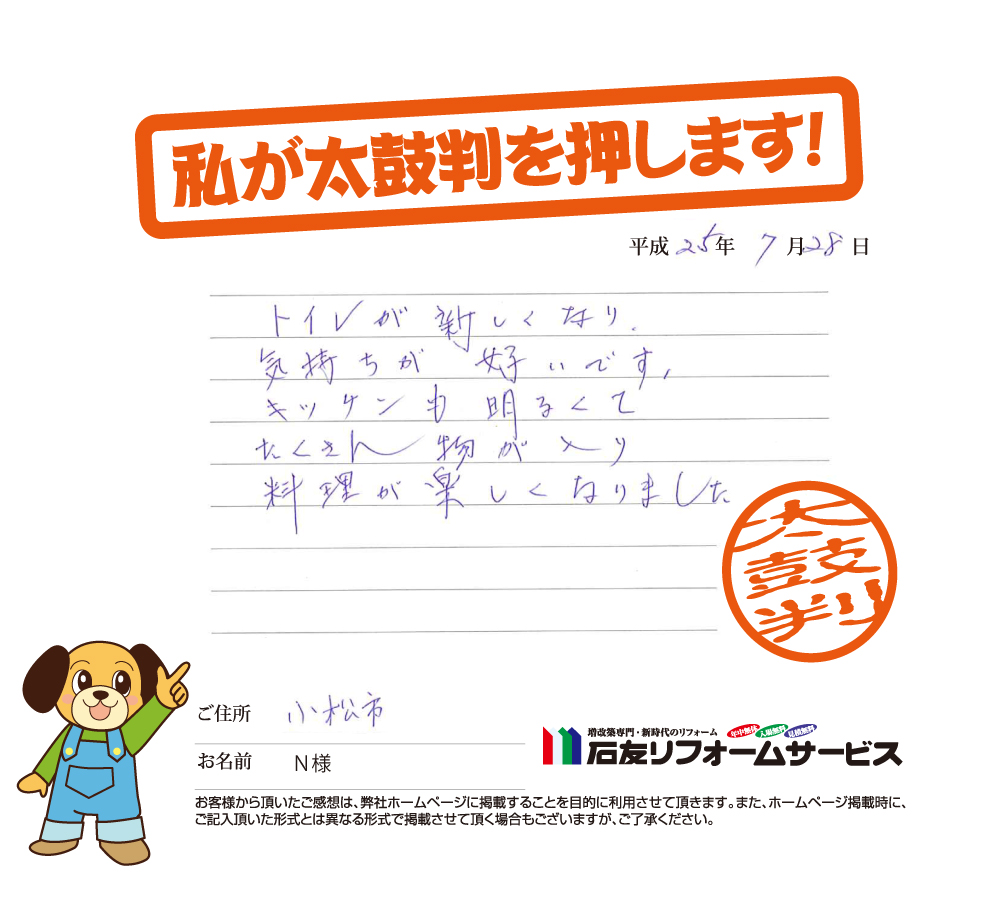 私が太鼓判を押します!
平成25年 7月28日
トイレが新しくなり、
気持ちが好いです,
キッチンも明るくて
たくさん物が入り
料理が楽しくなりました
太鼓判
ご住所 小松市
お名前 N様
増改築専門・新時代のリフォーム 年中無休 入場無料 見積無料
石友リフォームサービス
お客様から頂いたご感想は、弊社ホームページに掲載することを目的に利用させて頂きます。また、ホームページ掲載時に、
ご記入頂いた形式とは異なる形式で掲載させて頂く場合もございますが、ご了承ください。